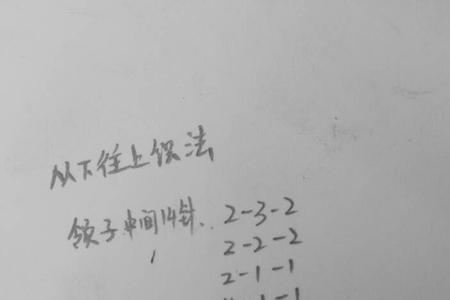 从下往上织法
领子中间14针.. 2-3-2
2-2-2
2-1-1
-1-1